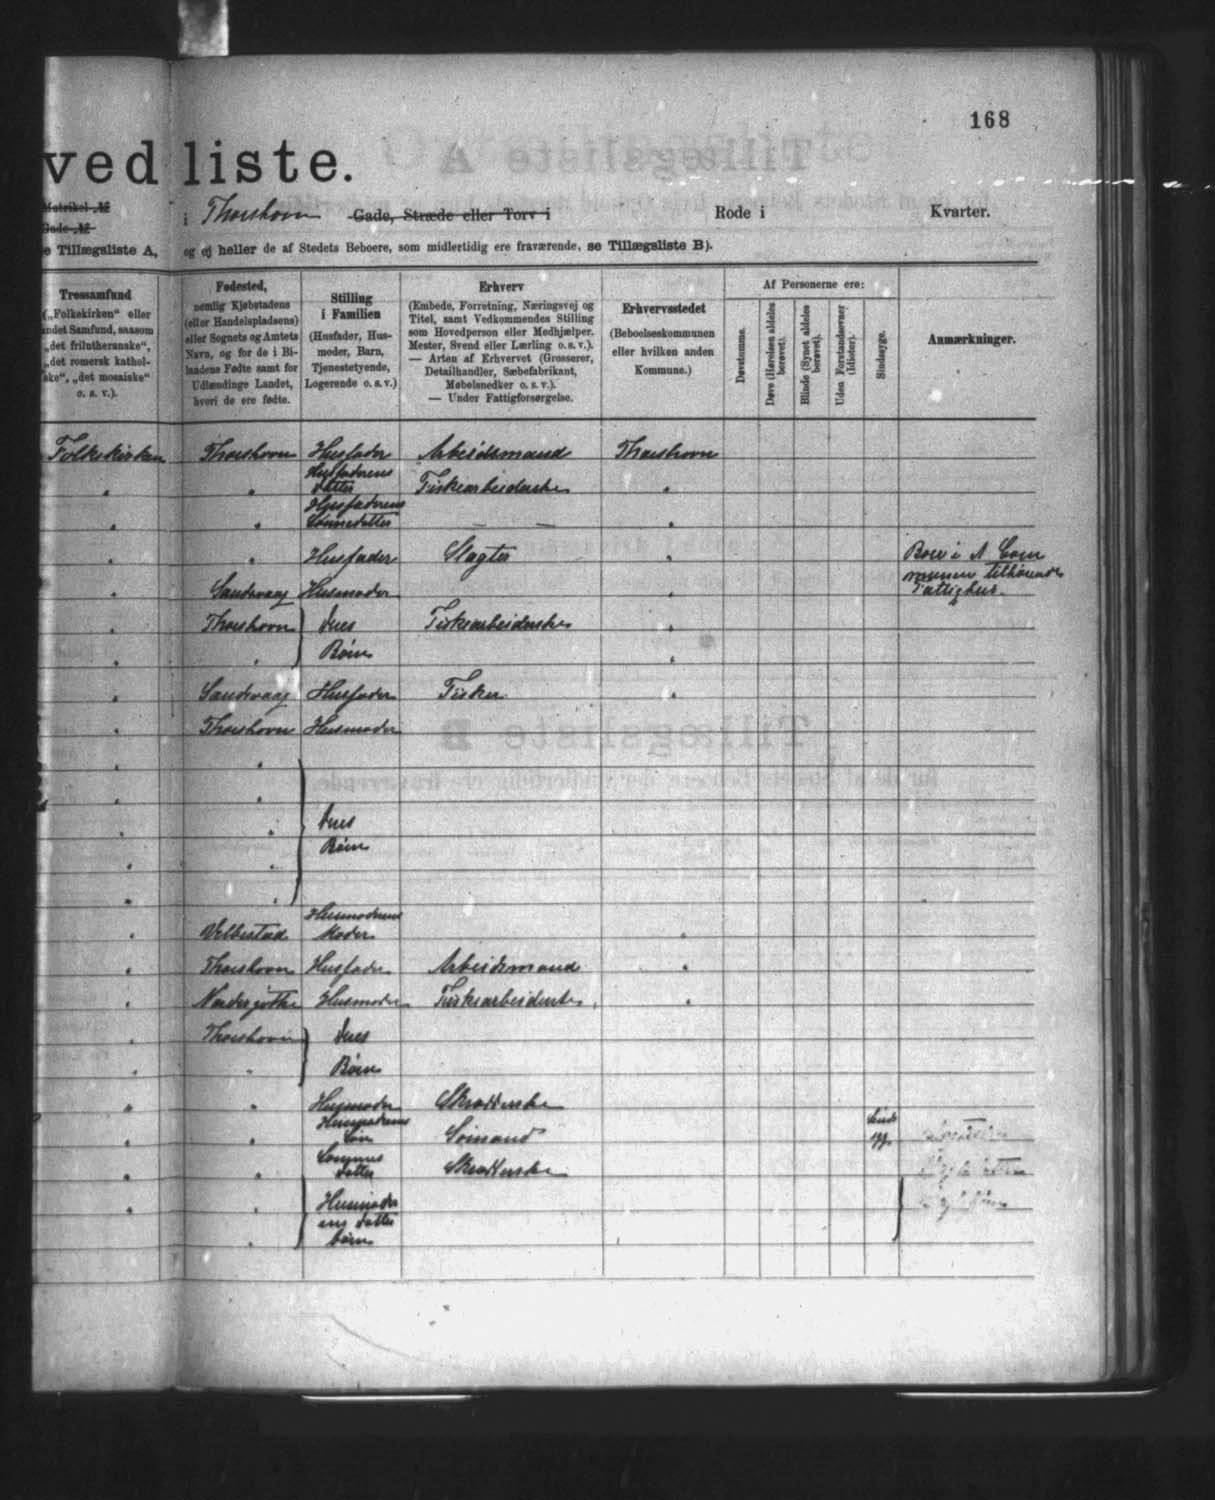 168
ved liste.
Matrikel-№
Gade-№
i Thorshavn Gade, Stræde eller Torv i Rode i Kvarter.
e Tillægsliste A, og ej heller de af Stedets Beboere, som midlertidig ere fraværende, se Tillægsliste B).
Trossamfund
(„Folkekirken“ eller
andet Samfund, saasom
„det frilutheranske“,
„det romersk kathol-
ske“, „det mosaiske“
o. s. v.).
Fødested,
nemlig Kjøbstadens
(eller Handelspladsens)
eller Sognets og Amtets
Navn, og for de i Bi-
landene Fødte samt for
Udlændinge Landet,
hvori de ere fødte.
Stilling
i Familien
(Husfader, Hus-
moder, Barn,
Tjenestetyende,
Logerende o. s. v.)
Erhverv
(Embede, Forretning, Næringsvej og
Titel, samt Vedkommendes Stilling
som Hovedperson eller Medhjælper.
Mester, Svend eller Lærling o. s. v.).
— Arten af Erhvervet (Grosserer,
Detailhandler, Sæbefabrikant,
Møbelsnedker o. s. v.).
— Under Fattigforsørgelse.
Erhvervsstedet
(Beboelseskommunen
eller hvilken anden
Kommune.)
Af Personerne ere:
Døvstumme.
Døve (Hørelsen aldeles
berøvet).
Blinde (Synet aldeles
berøvet).
Uden Forstandsevner
(Idioter).
Sindssyge.
Anmærkninger.
Folkekirken Thorshavn Husfader Arbeidsmand Thorshavn
" " Husfaderens
Datter Fiskearbeiderske "
" " Husfaderens
Sønnedatter — — "
" " Husfader Slagter " Boer i
" Sandevaag Husmoder " tilhørende
Fattighus.
" Thorshavn Deres Fiskearbeiderske "
" " Børn "
" Sandevaag Husfader Fisker "
" Thorshavn Husmoder
" "
" "
" " Deres
" " Børn
" "
" Velbestad Husmoderens
Moder "
" Thorshavn Husfader Arbeidsmand "
" Nordregøthe Husmoder Fiskearbeiderske "
" Thorshavn Deres
" " Børn
" " Husmoder Skrædderske
" " Husmoderens
Søn Sømand Sinds
syg.
" " Datter Skrædderske
" " Husmoder
ens Datter
" børn